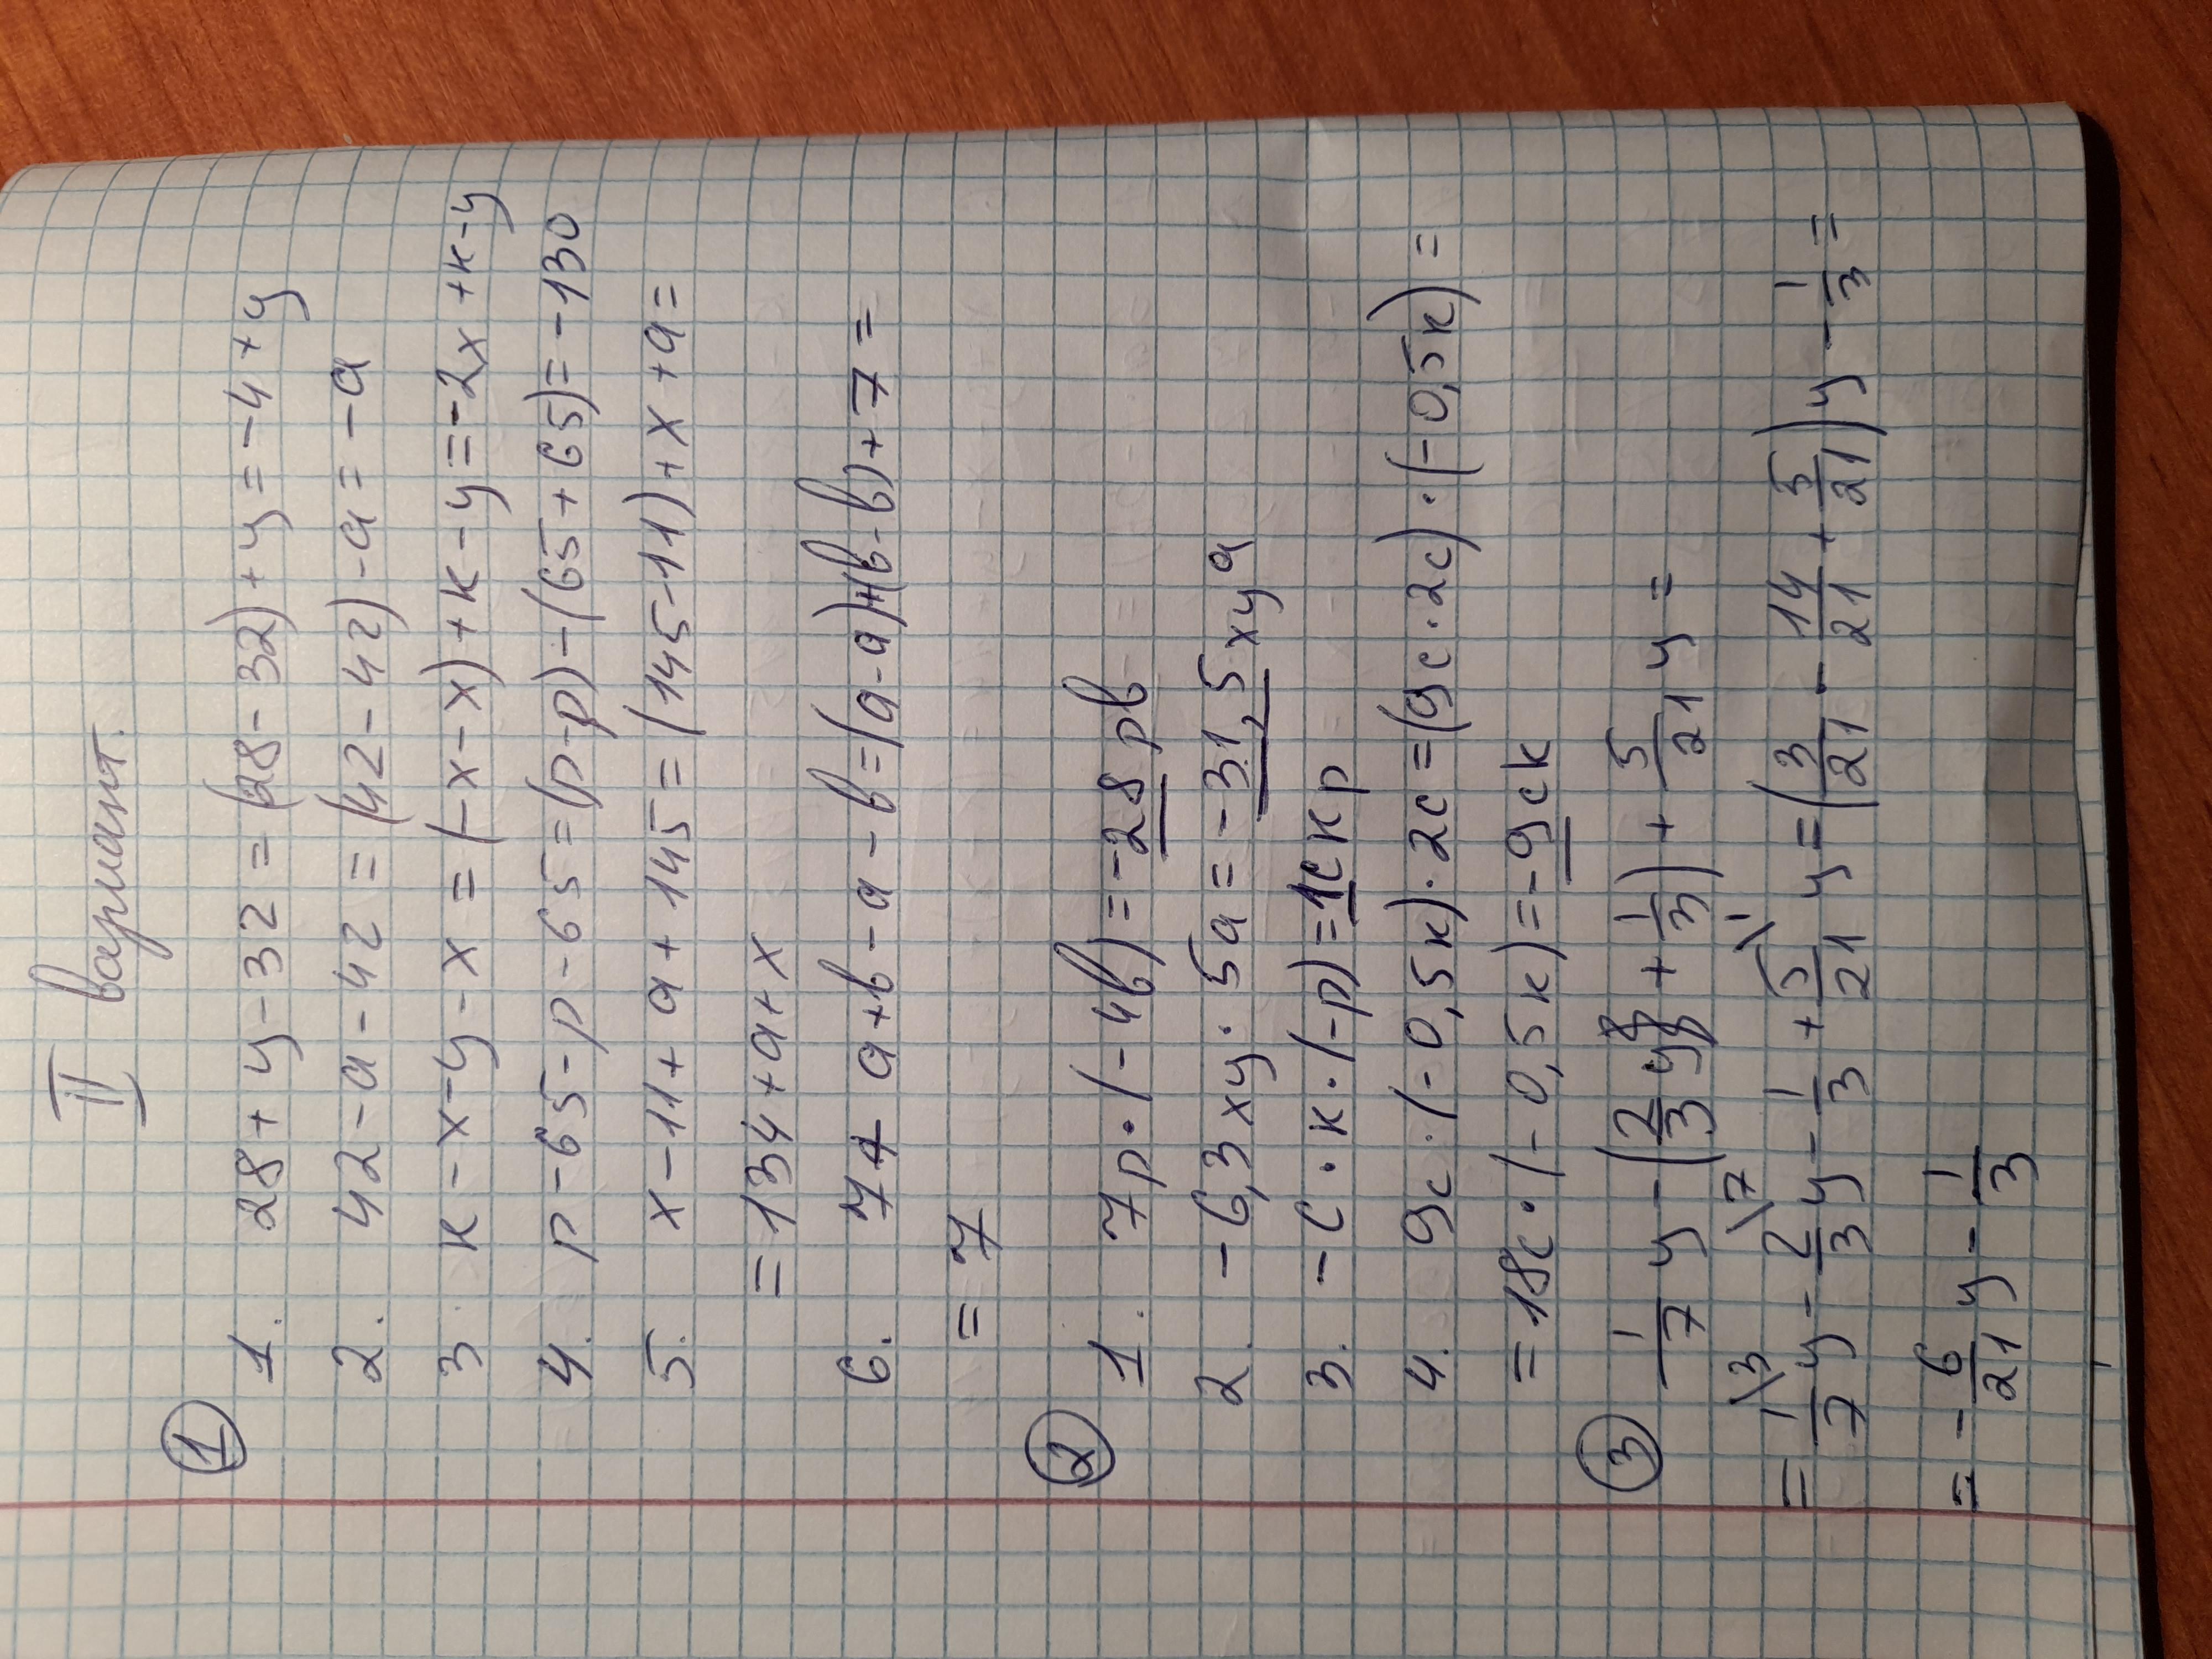 II вариант.
① 1. 28 + y - 32 = (28 - 32) + y = -4 + y
2. 42 - a - 42 = (42 - 42) - a = -a
3. k - x - y - x = (-x - x) + k - y = -2x + k - y
4. p - 65 - p - 65 = (p - p) - (65 + 65) = -130
5. x - 11 + a + 145 = (145 - 11) + x + a =
= 134 + a + x
6. 7 + a + b - a - b = (a - a) + (b - b) + 7 =
= 7
② 1. 7p · (-4b) = -28 pb
2. -6,3 xy · 5a = -31,5 xya
3. -c · k · (-p) = 1ckp
4. 9c · (-0,5k) · 2c = (9c · 2c) · (-0,5k) =
= 18c · (-0,5k) = -9ck
③ 1/7 y - (2/3 y + 1/3) + 5/21 y =
= 1\3/7 y - 2\7/3 y - 1/3 + 5\1/21 y = (3/21 - 14/21 + 5/21) y - 1/3 =
= - 6/21 y - 1/3